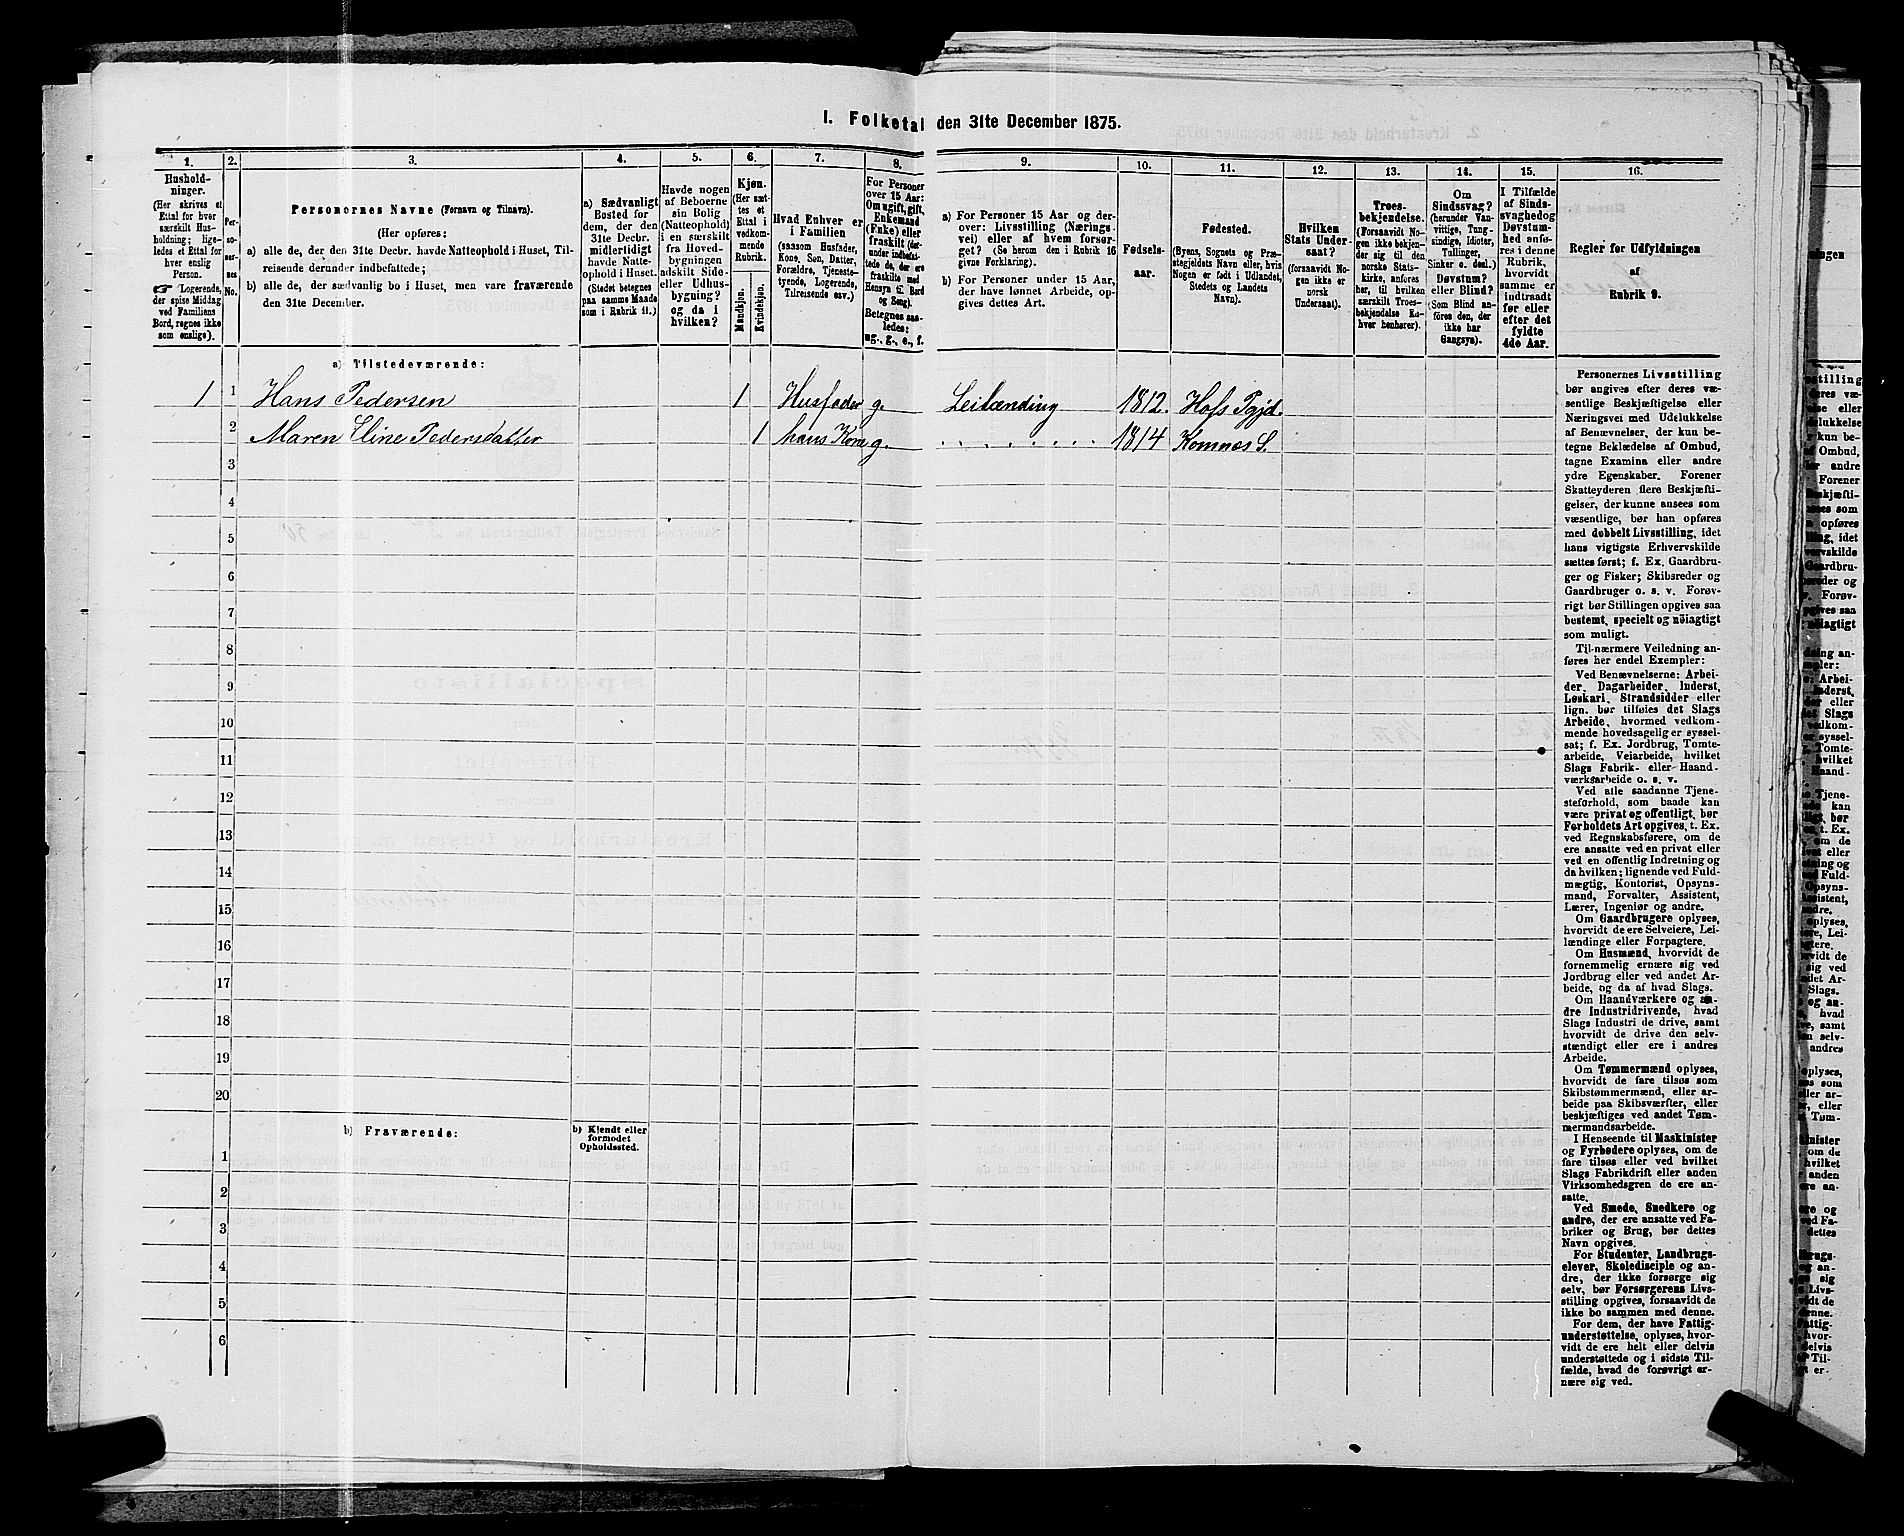 I. Folketal den 31te December 1875.
1. 2. 3. 4. 5. 6. 7. 8. 9. 10. 11. 12. 13. 14. 15. 16.
Hushold-
ninger.
(Her skrives et
Ettal for hver
særskilt Hus-
holdning; lige-
ledes et Ettal for
hver enslig
Person.
☞ Logerende,
der spise Middag
ved Familiens
Bord, regnes ikke
som enslige).
Per-
so-
ner-
nes
No.
Personernes Navne (Fornavn og Tilnavn).
(Her opføres:
a) alle de, der den 31te Decbr. havde Natteophold i Huset, Til-
reisende derunder indbefattede;
b) alle de, der sædvanlig bo i Huset, men vare fraværende
den 31te December.
a) Sædvanligt
Bosted for
dem, der den
31te Decbr.
midlertidigt
havde Natte-
ophold i Huset.
(Stedet betegnes
paa samme Maade
som i Rubrik 11.)
Havde nogen
af Beboerne
sin Bolig
(Natteophold)
i en særskilt
fra Hoved-
bygningen
adskilt Side-
eller Udhus-
bygning? og
og da i
hvilken?
Kjøn.
(Her sæt-
tes et
Ettal i
vedkom-
mende
Rubrik.
Mandkjøn.
Kvindekjøn.
Hvad Enhver er
i Familien
(saasom Husfader,
Kone, Søn, Datter,
Forældre, Tjeneste-
tyende, Logerende,
Tilreisende osv.)
For Personer
over 15 Aar:
Om ugift, gift,
Enkemand
(Enke) eller
fraskilt (der-
under indbefat-
tede de, der ere
fraskilte med
Hensyn til Bord
og Seng.)
Betegnes saa-
ledes:
ug., g., e., f.
a) For Personer 15 Aar og der-
over: Livsstilling (Nærings-
vei) eller af hvem forsør-
get? (Se herom den i Rubrik 16
givne Forklaring).
b) For Personer under 15 Aar,
der have lønnet Arbeide, op-
gives dettes Art.
Fødsels-
aar.
Fødested.
(Byens, Sognets og Præ-
stegjeldets Navn eller, hvis
Nogen er født i Udlandet,
Stedets og Landets
Navn).
Hvilken
Stats Under-
saat?
(forsaavidt No-
gen ikke er
norsk
Undersaat).
Troes-
bekjendelse.
(Forsaavidt No-
gen ikke bekjen-
der sig til den
norske Stats-
kirke, anføres
her, til hvilken
særskilt Troes-
bekjendelse En-
hver henhører).
Om
Sindssvag?
(herunder Van-
vittige, Tung-
sindige, Idioter,
Tullinger,
Sinker o. desl.)
Døvstum?
eller Blind?
(Som Blind an-
føres den, der
ikke har
Gangsyn).
I Tilfælde
af Sinds-
svaghed og
Døvstum-
hed anfø-
res i denne
Rubrik,
hvorvidt
samme er
indtraadt
før eller
efter det
fyldte
4de Aar.
Regler for Udfyldningen
af
Rubrik 9.
a) Tilstedeværende:
1 1 Hans Pedersen 1 Husfader g. Leilænding 1812. Hofs Pgjd.
2 Maren Eline Pedersdatter 1 hans Kone g. 1814 Komnæs S.
3
4
5
6
7
8
9
10
11
12
13
14
15
16
17
18
19
20
b) Fraværende:
b) Kjendt eller
formodet
Opholdssted.
1
2
3
4
5
6
Personernes Livsstilling
bør angives efter deres væ-
sentlige Beskjæftigelse eller
Næringsvei med Udelukkelse
af Benævnelser, der kun be-
tegne Beklædelse af Ombud,
tagne Examina eller andre
ydre Egenskaber. Forener
Skatteyderen flere Beskjæfti-
gelser, der kunne ansees som
væsentlige, bør han opføres
med dobbelt Livsstilling, idet
hans vigtigste Erhvervskilde
sættes først; f. Ex. Gaardbru-
ger og Fisker; Skibsreder og
Gaardbruger o. s. v. Forøv-
rigt bør Stillingen opgives saa
bestemt, specielt og nöiagtigt
som muligt.
Til nærmere Veiledning an-
føres her endel Exempler:
Ved Benævnelserne: Arbei-
der, Dagarbeider, Inderst,
Løskarl, Strandsidder eller
lign. bør tilføies det Slags
Arbeide, hvormed vedkom-
mende hovedsagelig er syssel-
sat; f. Ex. Jordbrug, Tomte-
arbeide, Veiarbeide, hvilket
Slags Fabrik- eller Haand-
værksarbeide o. s. v.
Ved alle saadanne Tjene-
steforhold, som baade kan
være privat og offentligt, bør
Forholdets Art opgives, t. Ex.
ved Regnskabsførere, om de
ere ansatte ved en privat eller
ved en offentlig Indretning og
da hvilken; lignende ved Fuld-
mægtig, Kontorist, Opsyns-
mand, Forvalter, Assistent,
Lærer, Ingeniør og andre.
Om Gaardbrugere oplyses,
hvorvidt de ere Selveiere, Lei-
lændinge eller Forpagtere.
Om Husmænd, hvorvidt de
fornemmelig ernære sig ved
Jordbrug eller ved andet Ar-
beide, og da af hvad Slags.
Om Haandværkere og an-
dre Industridrivende, hvad
Slags Industri de drive, samt
hvorvidt de drive den selv-
stændigt eller ere i andres
Arbeide.
Om Tømmermænd oplyses,
hvorvidt de fare tilsøs som
Skibstømmermænd, eller ar-
beide paa Skibsværfter, eller
beskjæftiges ved andet Tøm-
mermandsarbeide.
I Henseende til Maskinister
og Fyrbødere oplyses, om de
fare tilsøs eller ved hvilket
Slags Fabrikdrift eller anden
Virksomhedsgren de ere an-
satte.
Ved Smede, Snedkere og
andre, der ere ansatte ved Fa-
briker og Brug, bør dettes
Navn opgives.
For Studenter, Landbrugs-
elever, Skoledisciple og an-
dre, der ikke forsørge sig
selv, bør Forsørgerens Livs-
stilling opgives, forsaavidt de
ikke bo sammen med denne.
For dem, der have Fattig-
understøttelse, oplyses, hvor-
vidt de ere helt eller delvis
understøttede og i sidste Til-
fælde, hvad de forøvrigt er-
nære sig ved.